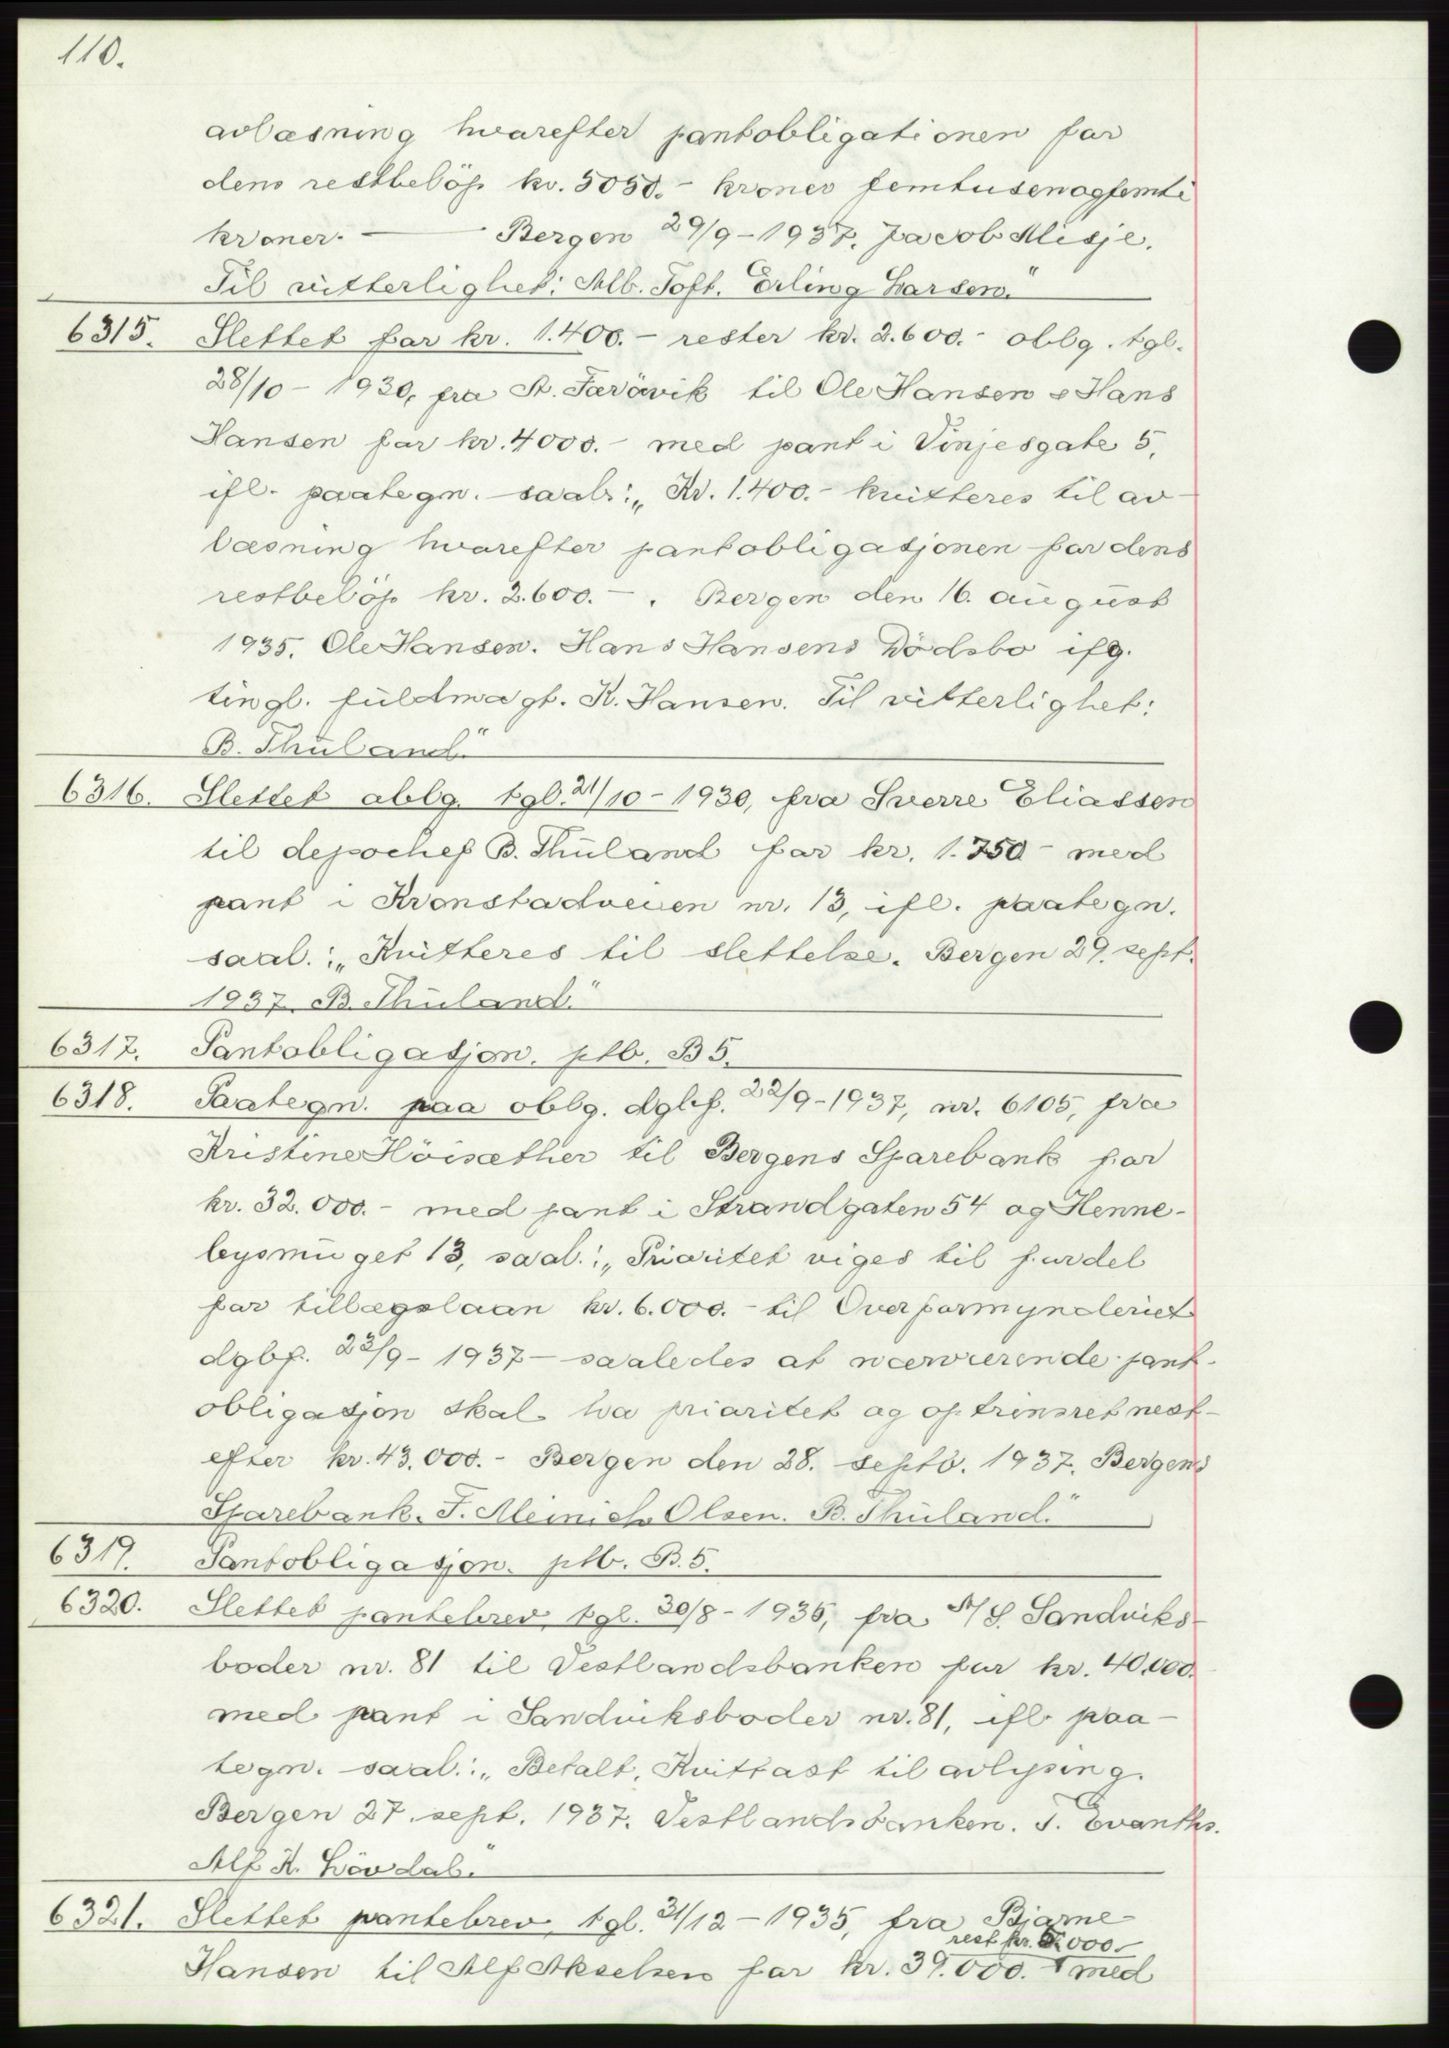 110.
avlæsning hvorefter pantobligationen for
dens restbeløp kr. 5050.- kroner femtusenogfemti
kroner. — Bergen 29/9-1937. Jacob Misje.
Til vitterlighet: Alb. Toft. Erling Larsen."
6315. Slettet for kr. 1.400.- rester kr. 2.600.- oblg. tgl.
28/10-1930, fra A. Færövik til Ole Hansen & Hans
Hansen for kr. 4000.- med pant i Vinjesgate 5,
ifl. paategn. saal.: „Kr. 1.400.- kvitteres til av-
læsning hvorefter pantobligasjonen for dens
restbeløp kr. 2.600.-. Bergen den 16. august
1935. Ole Hansen. Hans Hansens Dödsbo ifg.
tingl. fuldmagt. K. Hansen. Til vitterlighet:
B. Thuland."
6316. Slettet oblg. tgl. 21/10-1930, fra Sverre Eliassen
til depochef B. Thuland for kr. 1.750- med
pant i Kronstadveien nr. 13, ifl. paategn.
saal.: „Kvitteres til slettelse. Bergen 29. sept.
1937. B. Thuland."
6317. Pantobligasjon. ptb. B 5.
6318. Paategn. paa oblg. dgbf. 22/9-1937, nr. 6105, fra
Kristine Höisæther til Bergens Sparebank for
kr. 32.000.- med pant i Strandgaten 54 og Henne-
beysmuget 13, saal.: „Prioritet viges til fordel
for tillægslaan kr. 6.000.- til Overformynderiet
dgbf. 23/9-1937- saaledes at nærværende pant-
obligasjon skal ha prioritet og optrinsret nest-
efter kr. 43.000.- Bergen den 28. septb. 1937. Bergens
Sparebank. F. Meinich Olsen. B. Thuland."
6319. Pantobligasjon. ptb. B.5.
6320. Slettet pantebrev, tgl. 30/8-1935, fra A/S. Sandviks-
boder nr. 81 til Vestlandsbanken for kr. 40.000.
med pant i Sandviksboder nr. 81, ifl. paa-
tegn. saal.: „Betalt, Kvittast til avlysing.
Bergen 27. sept. 1937. Vestlandsbanken. T. Evanths.
Alf K. Lövdal."
6321. Slettet pantebrev, tgl. 31/12-1935, fra Bjarne
rest kr. 5.000.-
Hansen til Alf Akselsen for kr. 39.000.- med